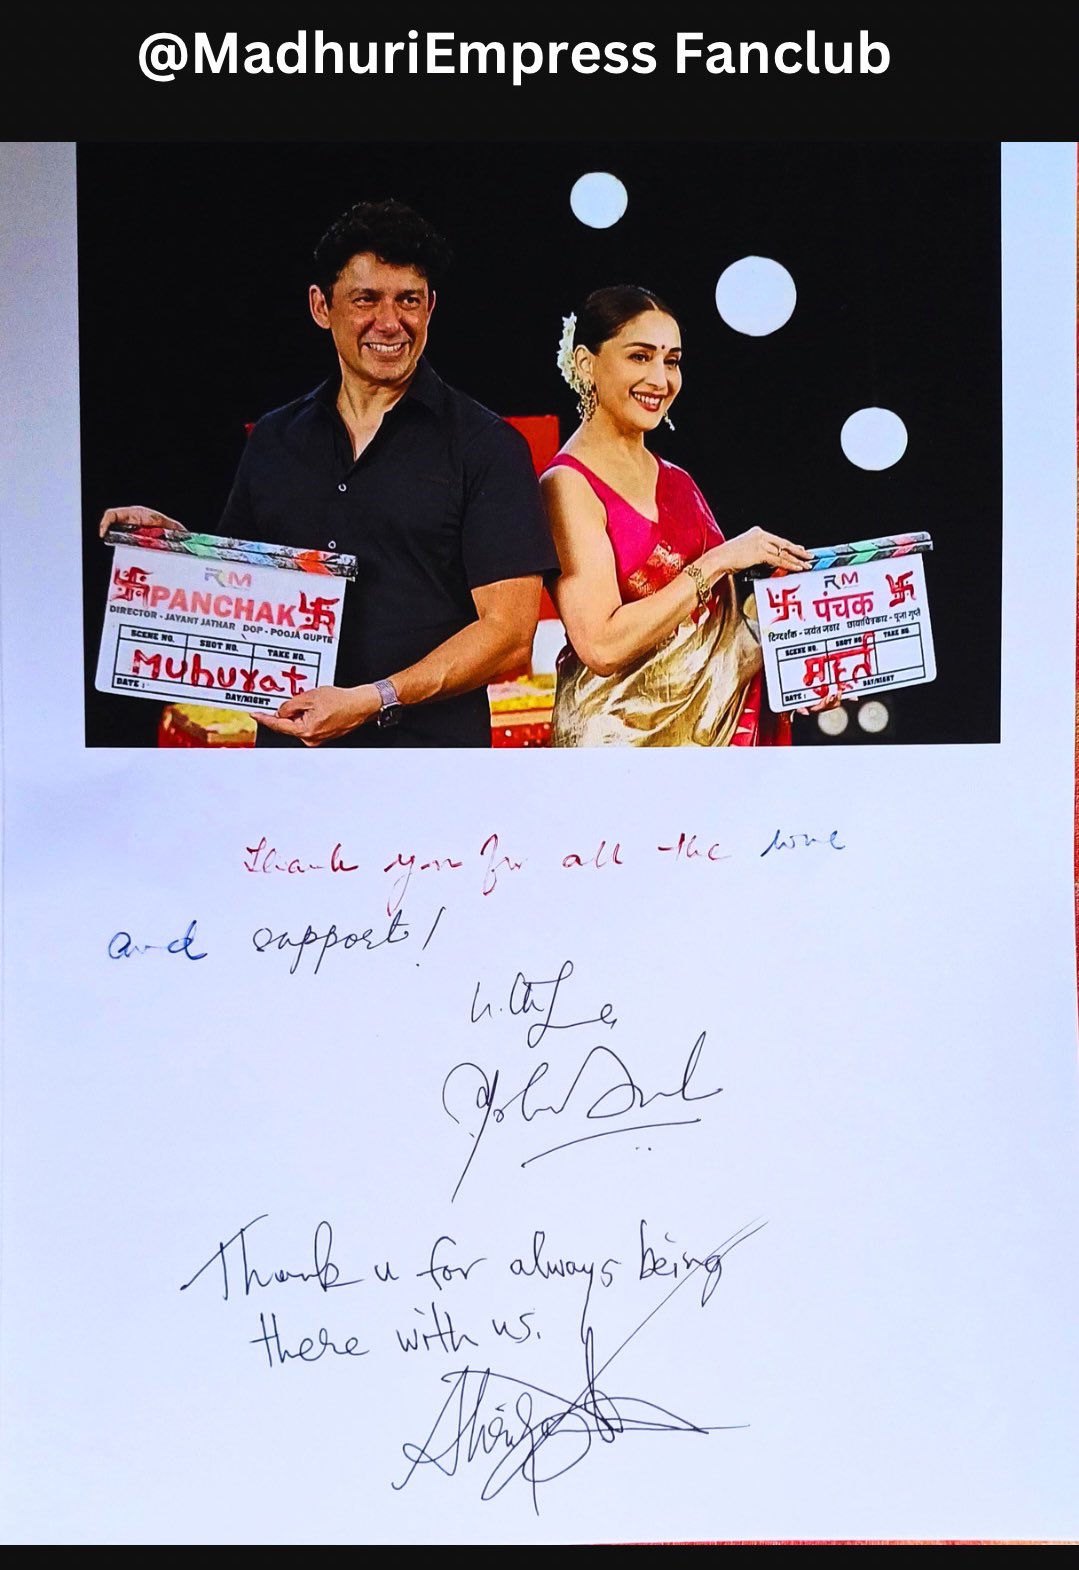 @MadhuriEmpress Fanclub
RM
PANCHAK
DIRECTOR - JAYANT JATHAR DOP - POOJA GUPTE
SCENE NO. SHOT NO. TAKE NO.
Muhurat
DATE : DAY/NIGHT
RM
पंचक
दिग्दर्शक - जयंत जठार छायाचित्रकार - पूजा गुप्ते
SCENE NO. SHOT NO. TAKE NO.
मुहूर्त
DATE : DAY/NIGHT
Thank you for all the love
and support!
With Love
Thank u for always being
there with us.